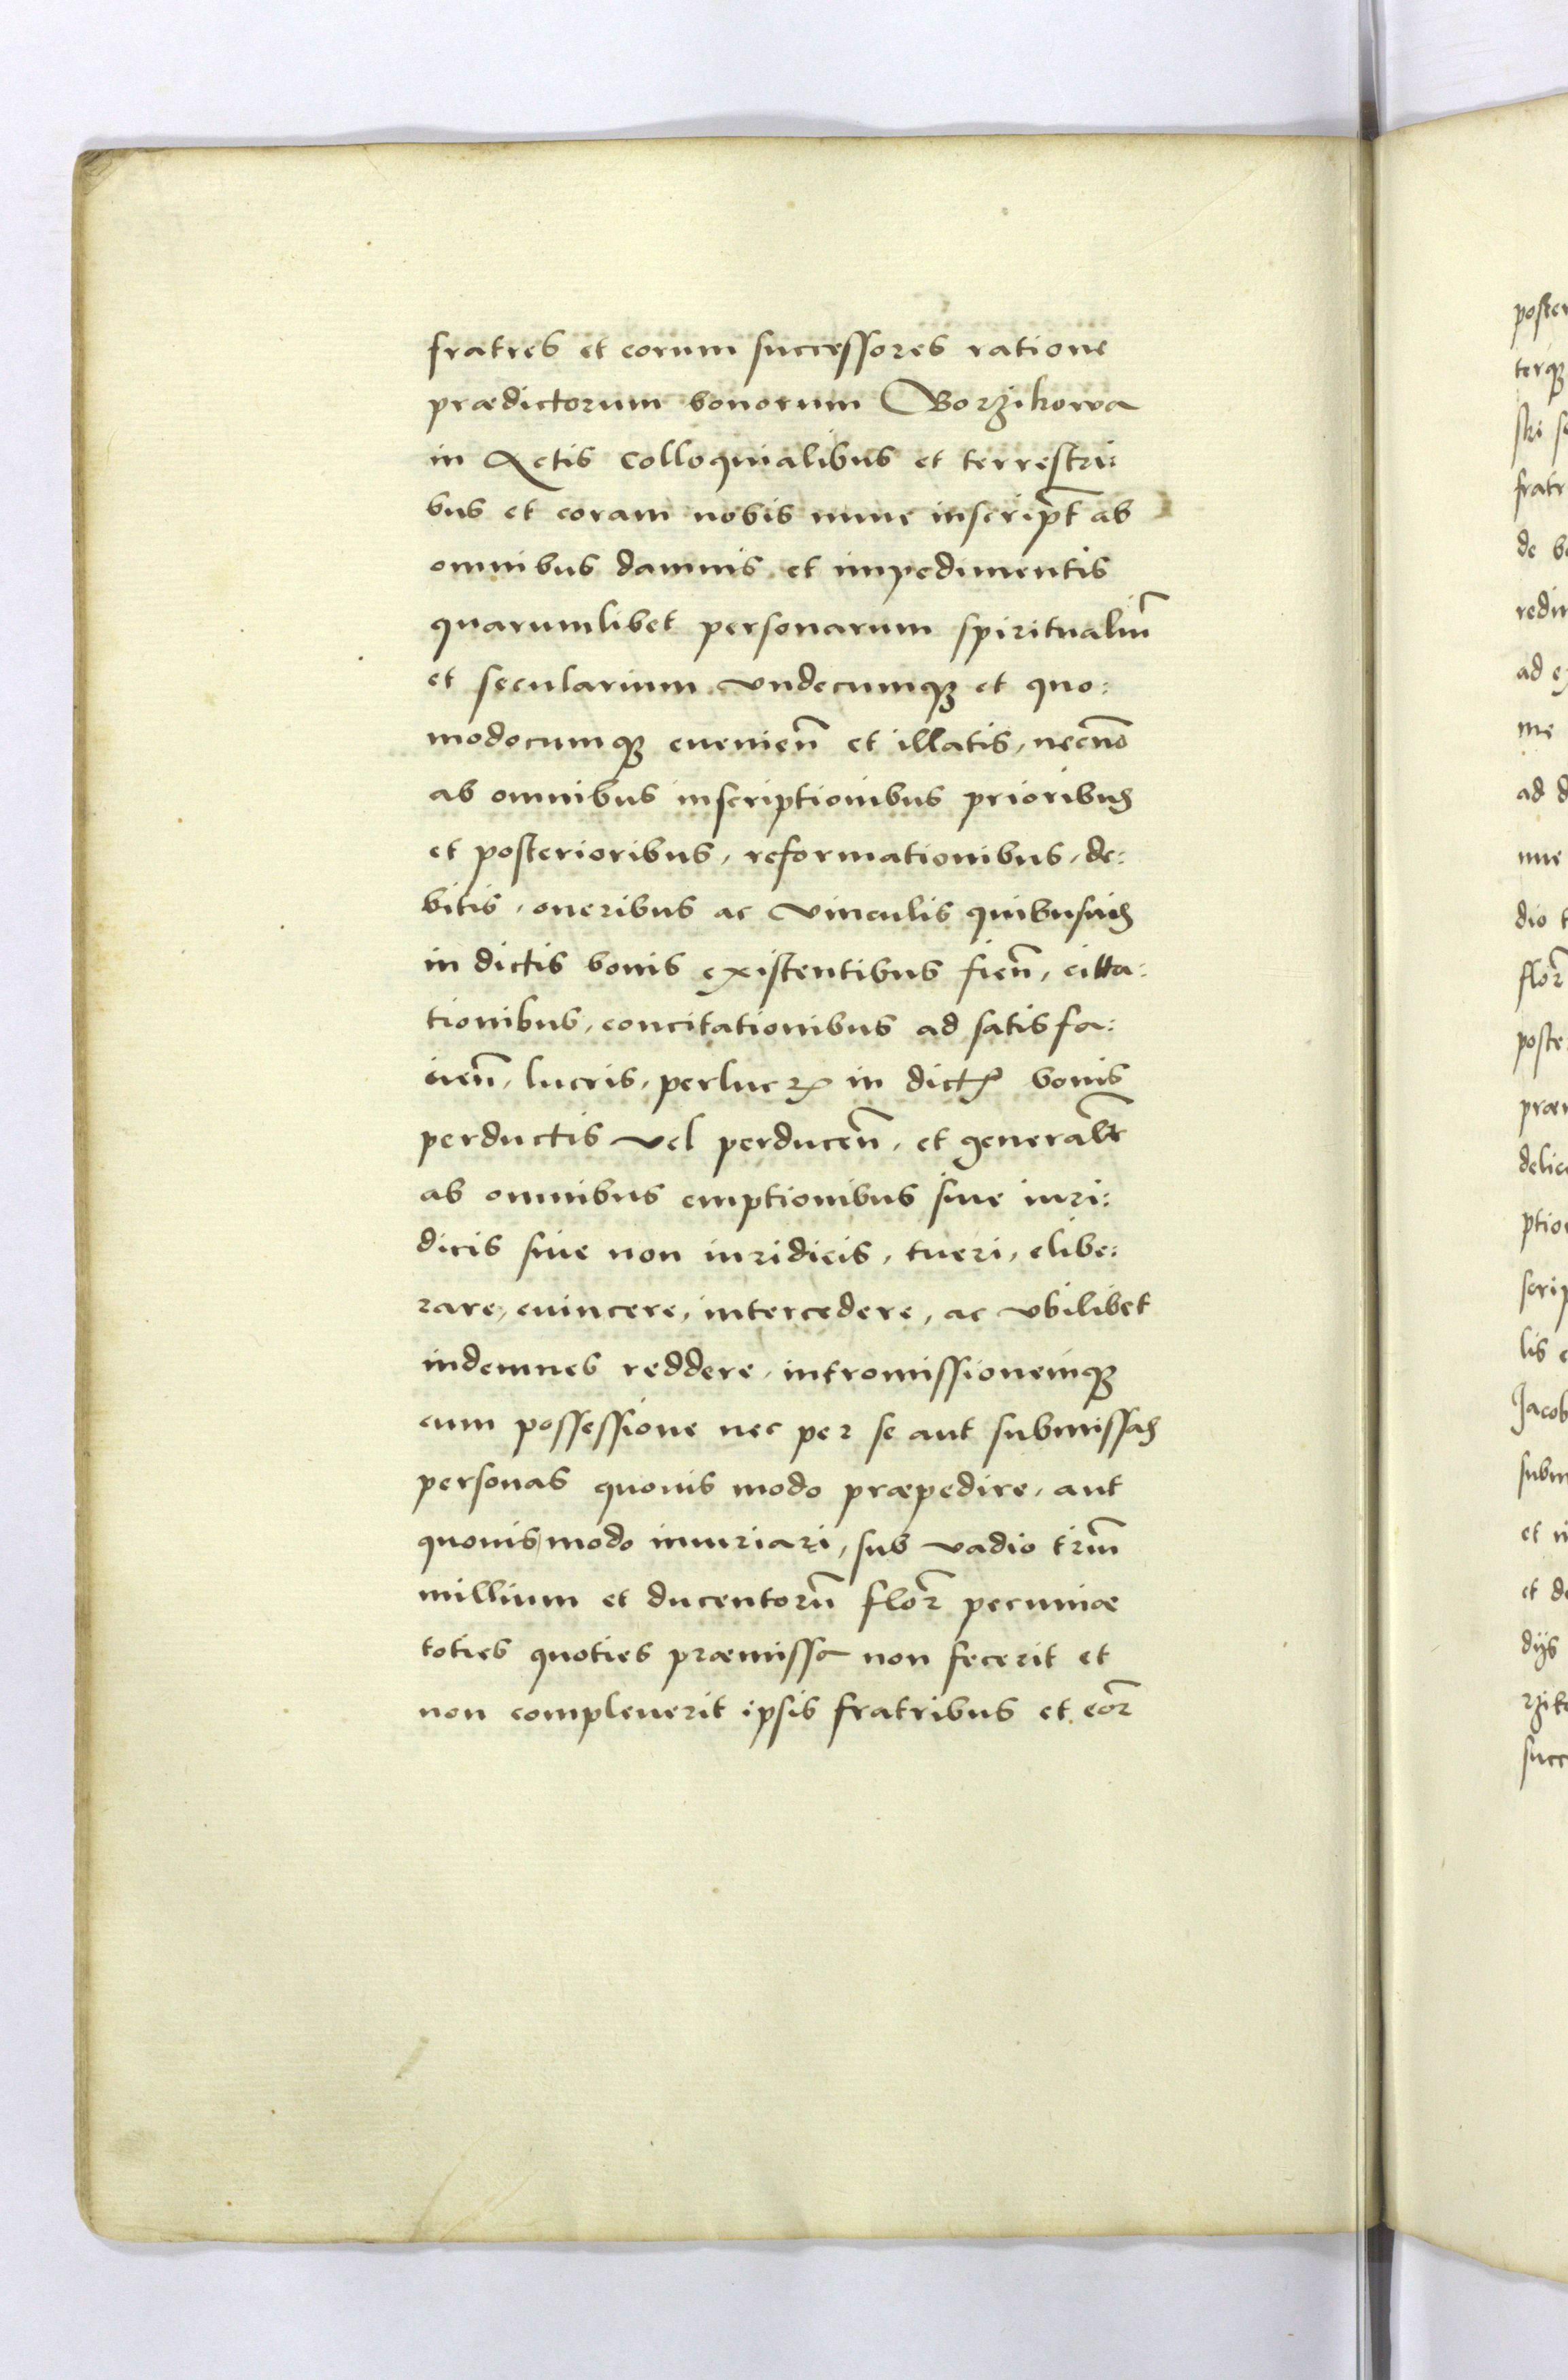 fratres et eorum successores ratione
prædictorum bonorum Borzikowa
in Actis colloquialibus et terrestri:
bus et coram nobis nunc inscript̃ ab
omnibus damnis et impedimentis
quarumlibet personarum spiritualiũ
et secularium undecumqꝫ et quo:
modocumqꝫ evenieñ et illatis, necño
ab omnibus inscriptionibus prioribus
et posterioribus, reformationibus, de:
bitis, oneribus ac vinculis quibusuis
in dictis bonis existentibus fieñ, citta:
tionibus, concitationibus ad satisfa:
cieñ, lucris, perlucꝝ in dictis bonis
perductis vel perduceñ, et generalr̃
ab omnibus emptionibus siue iuri:
dicis siue non iuridicis, tueri, elibe:
rare, euincere, intercedere, ac ubilibet
indemnes reddere, intromissionemqꝫ
cum possessione nec per se aut submissas
personas quouis modo præpedire, aut
quouis modo iniuriari, sub vadio triũ
millium et ducentorũ flor̃ pecuniæ
toties quoties præmissa non fecerit et
non compleuerit ipsis fratribus et eor̃
poster
terqꝫ
ski s
fratr
de b
redi
ad e
me
ad d
nne
dio t
flor̃
poste
præ
delic
ptio
scrip
lis
Jacob
subm
et
et d
dijs
rzik
succ